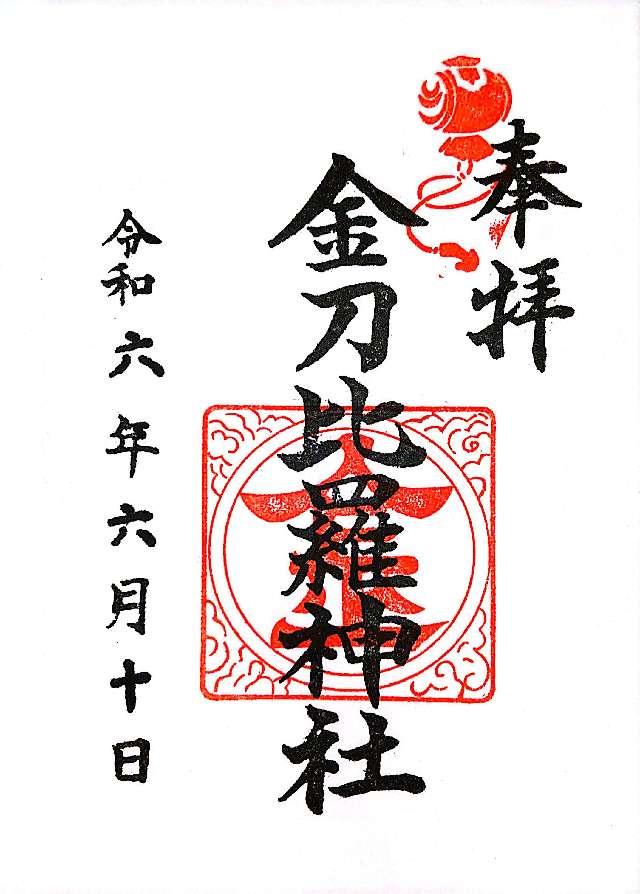 奉拝
金刀比羅神社
令和六年六月十日